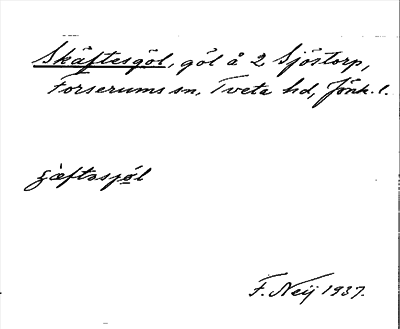 Skäftesgöl, göl å 2 Sjöstorp,
Forserums sn. Tveta hd, Jönk. l.
F. Neij 1937.